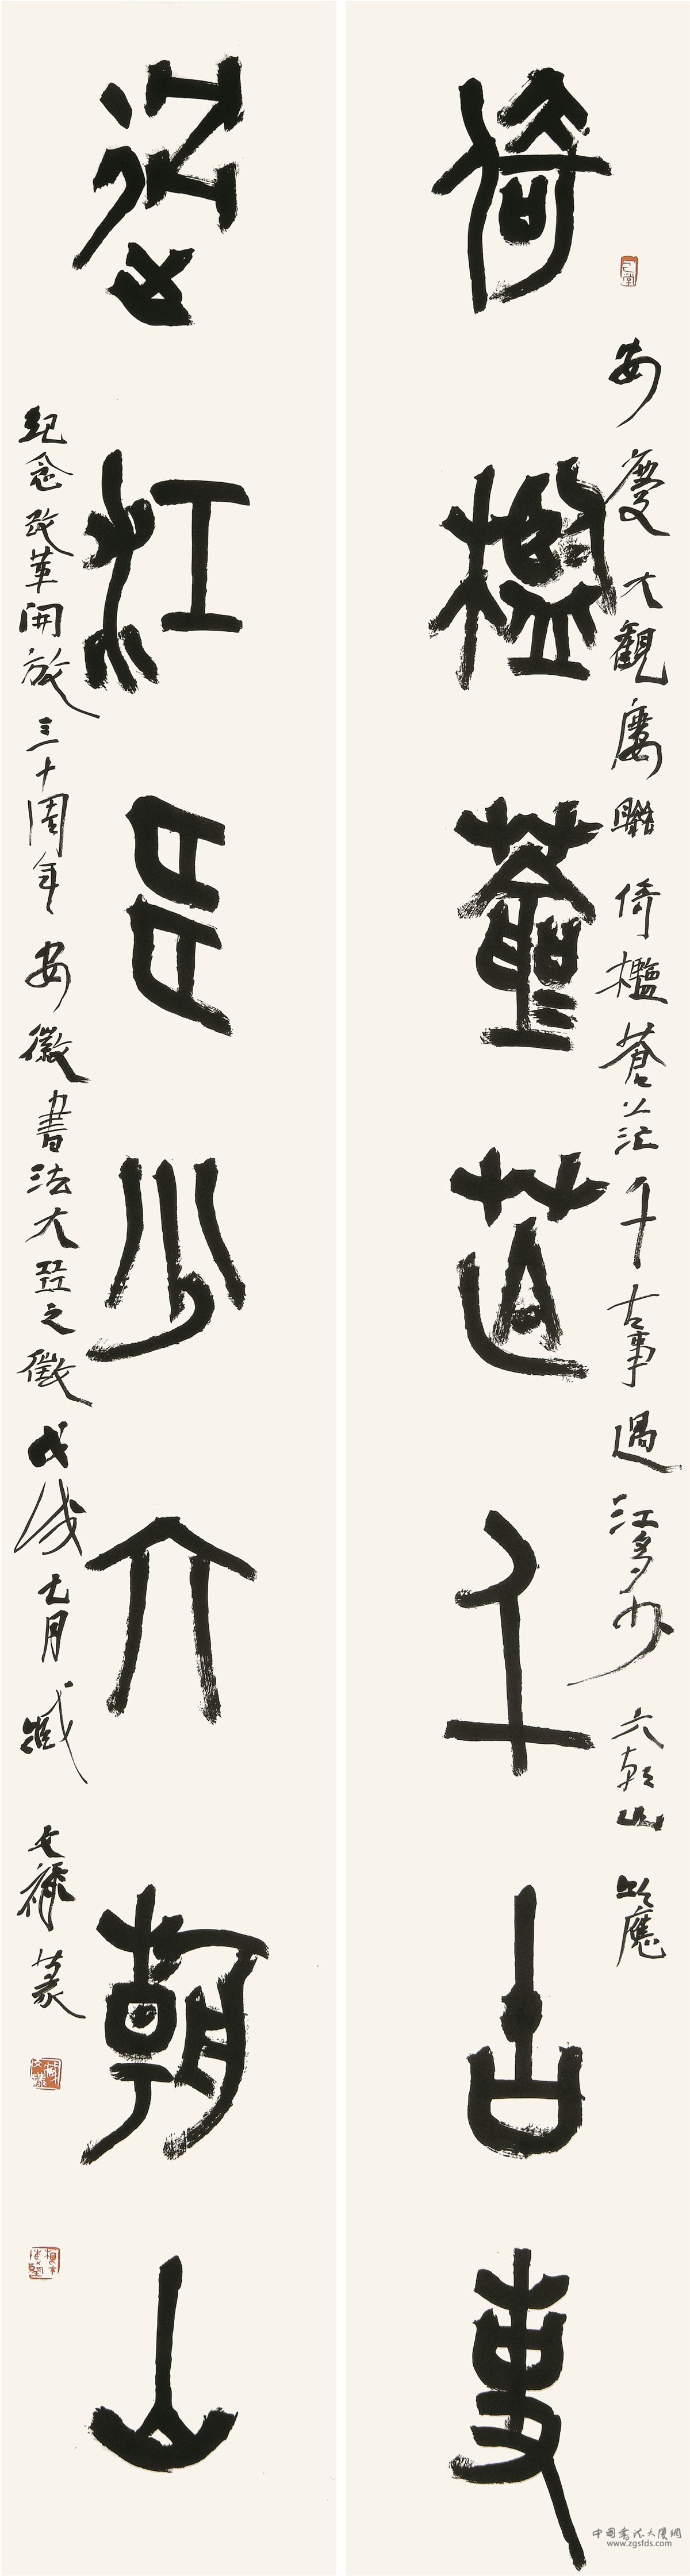 倚槛苍茫千古事
安慶大觀楼聯 倚檻蒼茫千古事 過江多少六朝山 以應
過江多少六朝山
紀念改革開放三十周年 安徽書法大展之徵 戊戌七月 臧
文彝 篆
中国书法大厦网
www.zgsfds.com